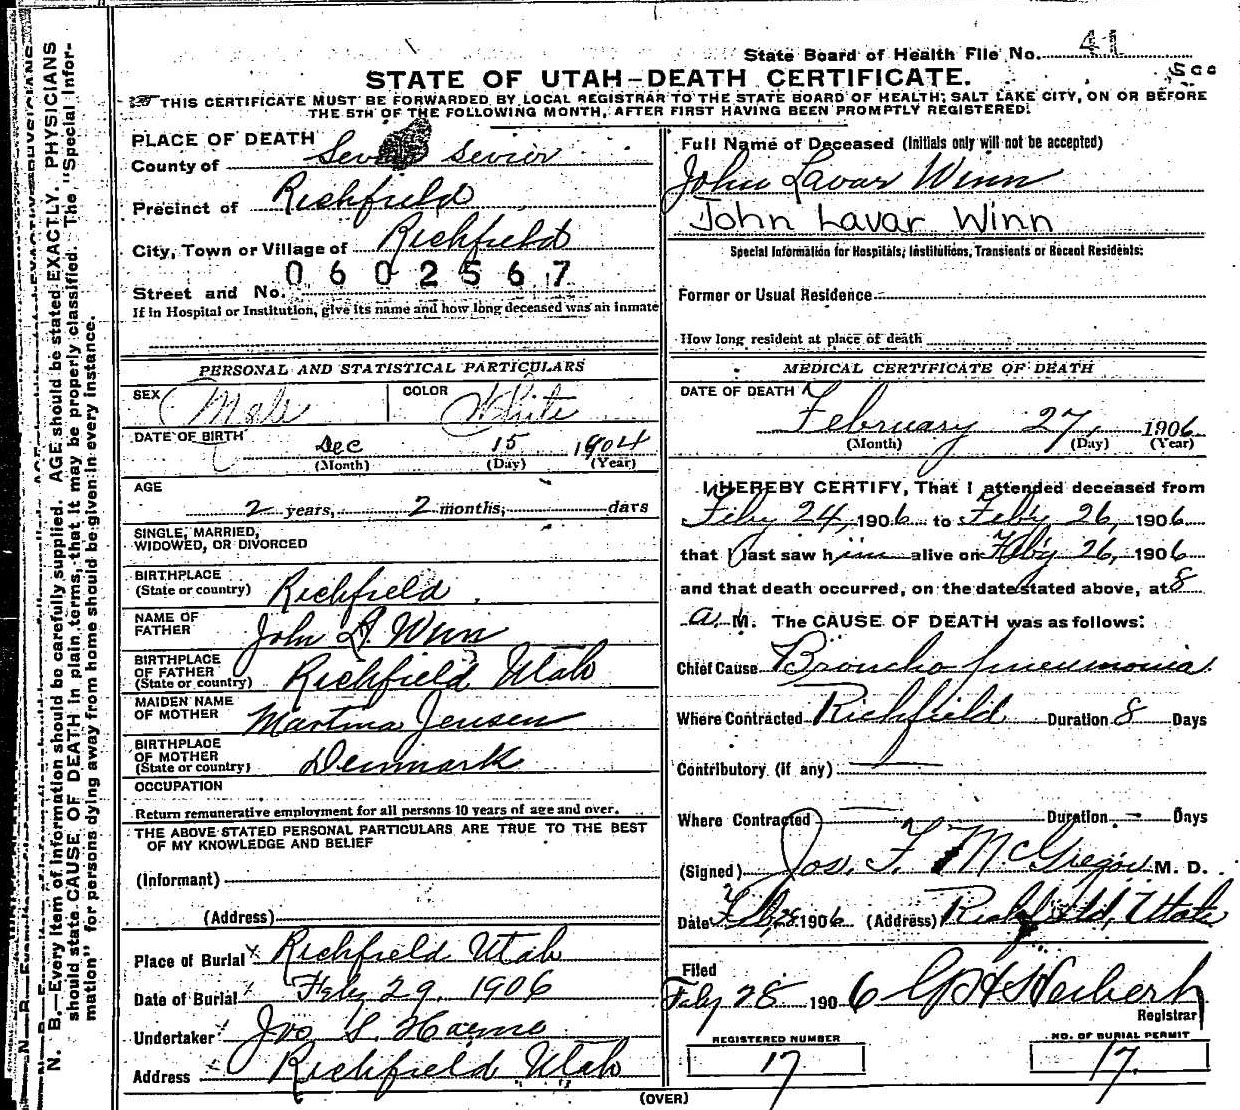 State Board of Health File No. 41
STATE OF UTAH—DEATH CERTIFICATE.
THIS CERTIFICATE MUST BE FORWARDED BY LOCAL REGISTRAR TO THE STATE BOARD OF HEALTH, SALT LAKE CITY, ON OR BEFORE
THE 5TH OF THE FOLLOWING MONTH, AFTER FIRST HAVING BEEN PROMPTLY REGISTERED.
PLACE OF DEATH
County of Sevier
Precinct of Richfield
City, Town or Village of Richfield
0602567
Street and No.
If in Hospital or Institution, give its name and how long deceased was an inmate
PERSONAL AND STATISTICAL PARTICULARS
SEX Male COLOR White
DATE OF BIRTH Dec 15 1904
(Month) (Day) (Year)
AGE
2 years, 2 months, days
SINGLE, MARRIED,
WIDOWED, OR DIVORCED
BIRTHPLACE
(State or country) Richfield
NAME OF
FATHER John A. Winn
BIRTHPLACE
OF FATHER
(State or country) Richfield Utah
MAIDEN NAME
OF MOTHER Martina Jensen
BIRTHPLACE
OF MOTHER
(State or country) Denmark
OCCUPATION
Return remunerative employment for all persons 10 years of age and over.
THE ABOVE STATED PERSONAL PARTICULARS ARE TRUE TO THE BEST
OF MY KNOWLEDGE AND BELIEF
(Informant)
(Address)
Place of Burial Richfield Utah
Date of Burial Feby 29, 1906
Undertaker Jos S.
Address Richfield Utah
Full Name of Deceased (Initials only will not be accepted)
John Lavar Winn
John Lavar Winn
Special Information for Hospitals, Institutions, Transients or Recent Residents:
Former or Usual Residence
How long resident at place of death
MEDICAL CERTIFICATE OF DEATH
DATE OF DEATH
February 27, 1906
(Month) (Day) (Year)
I HEREBY CERTIFY, That I attended deceased from
Feby 24, 1906 to Feby 26, 1906
that I last saw him alive on Feby 26, 1906
and that death occurred, on the date stated above, at 8
a. M. The CAUSE OF DEATH was as follows:
Chief Cause Broncho pneumonia
Where Contracted Richfield Duration 8 Days
Contributory (if any)
Where Contracted Duration Days
(Signed) Jos. F. McGregor M. D.
Date Feb 28 1906 (Address) Richfield, Utah
Filed
Feby 28 1906 Herbert
Registrar
REGISTERED NUMBER
17
NO. OF BURIAL PERMIT
17.
(OVER)
N. B.—Every item of information should be carefully supplied. AGE should be stated EXACTLY. PHYSICIANS
should state CAUSE OF DEATH in plain terms, that it may be properly classified. The "Special Infor-
mation" for persons dying away from home should be given in every instance.